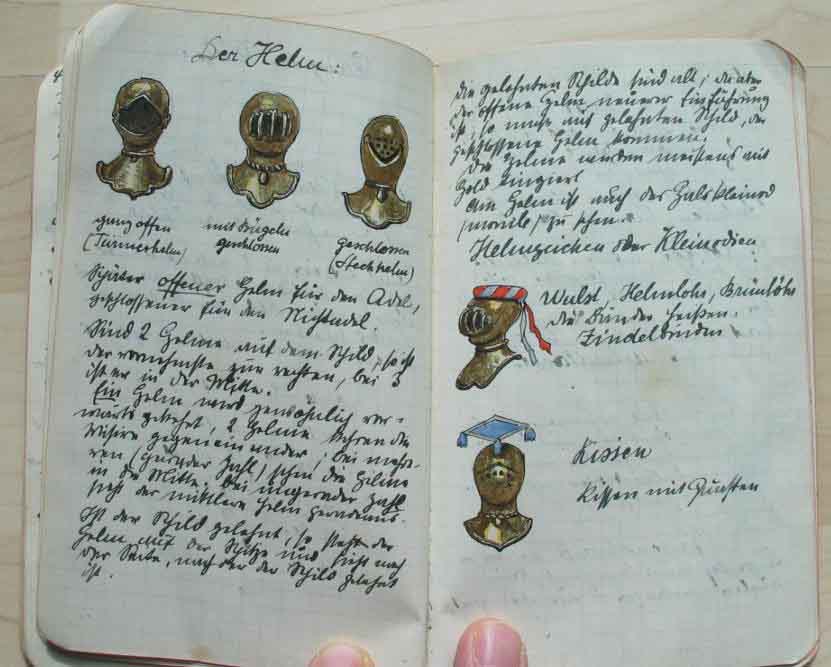 Der Helm:
ganz offen
(Turnierhelm)
mit Bügeln
geschlossen
geschlossen
(Stechhelm)
Später offener Helm für den Adel,
geschlossener für den Nichtadel.
Sind 2 Helme auf dem Schild, so ist
der vornehmste zur rechten, bei 3
ist er in der Mitte.
Ein Helm wird gewöhnlich vor-
wärts gekehrt, 2 Helme kehren die
Visire gegeneinander, bei mehre-
ren (gerader Zahl) sehen die Helme
in die Mitte. Bei ungerader Zahl
sieht der mittlere Helm geradeaus.
Ist der Schild gelehnt, so steht der
Helm auf der Spitze und sieht nach
der Seite, nach der der Schild gelehnt
ist.
die gelehnten Schilde sind alt, da aber
der offene Helm neuerer Einführung
ist, so muss auf gelehnten Schild, der
geschlossene Helm kommen.
Die Helme wurden meistens mit
Gold tingiert
Am Helm ist auch das Halskleinod
(monile) zu sehen.
Helmzeichen oder Kleinodien
Wulst, Helmlohr, Brünlöhr
die Binden heißen
Zindelbinden
Kissen
Kissen mit Quasten